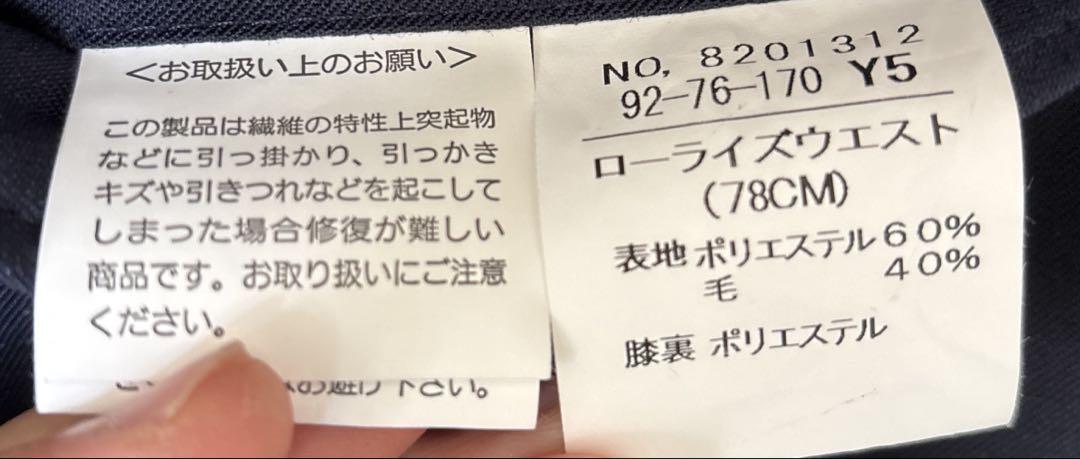 ＜お取扱い上のお願い＞
この製品は繊維の特性上突起物
などに引っ掛かり、引っかき
キズや引きつれなどを起こして
しまった場合修復が難しい
商品です。お取り扱いにご注意
ください。
お避け下さい。
NO, 8201312
92-76-170 Y5
ローライズウエスト
(78CM)
表地 ポリエステル 60%
毛 40%
膝裏 ポリエステル